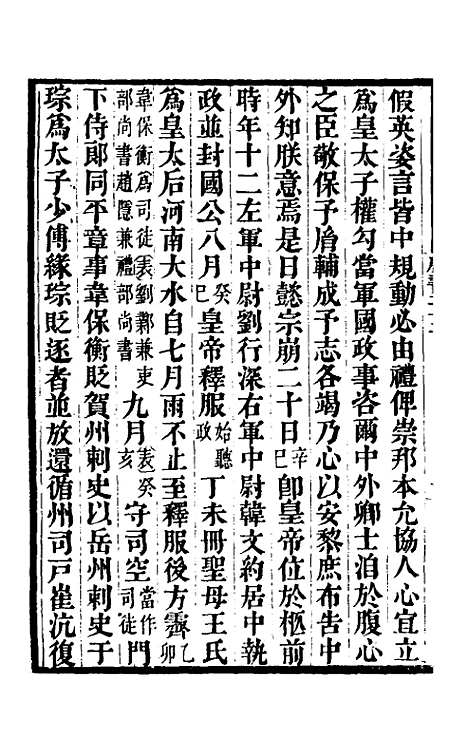 假英姿言皆中規動必由禮俾崇邦本允協人心宜立
爲皇太子權勾當軍國政事咨爾中外卿士洎於腹心
之臣敬保予胤輔成予志各竭乃心以安黎庶布告中
外知朕意焉是日懿宗崩二十日辛巳卽皇帝位於柩前
時年十二左軍中尉劉行深右軍中尉韓文約居中執
政並封國公八月癸巳皇帝釋服始聽政丁未冊聖母王氏
爲皇太后河南大水自七月雨不止至釋服後方霽乙卯
韋保衡爲司徒表劉鄴兼吏部尚書趙隱兼禮部尚書九月表癸亥守司空當作司徒門
下侍郎同平章事韋保衡貶賀州刺史以岳州刺史于
琮爲太子少傅緣琮貶逐者並放還循州司戸崔沆復